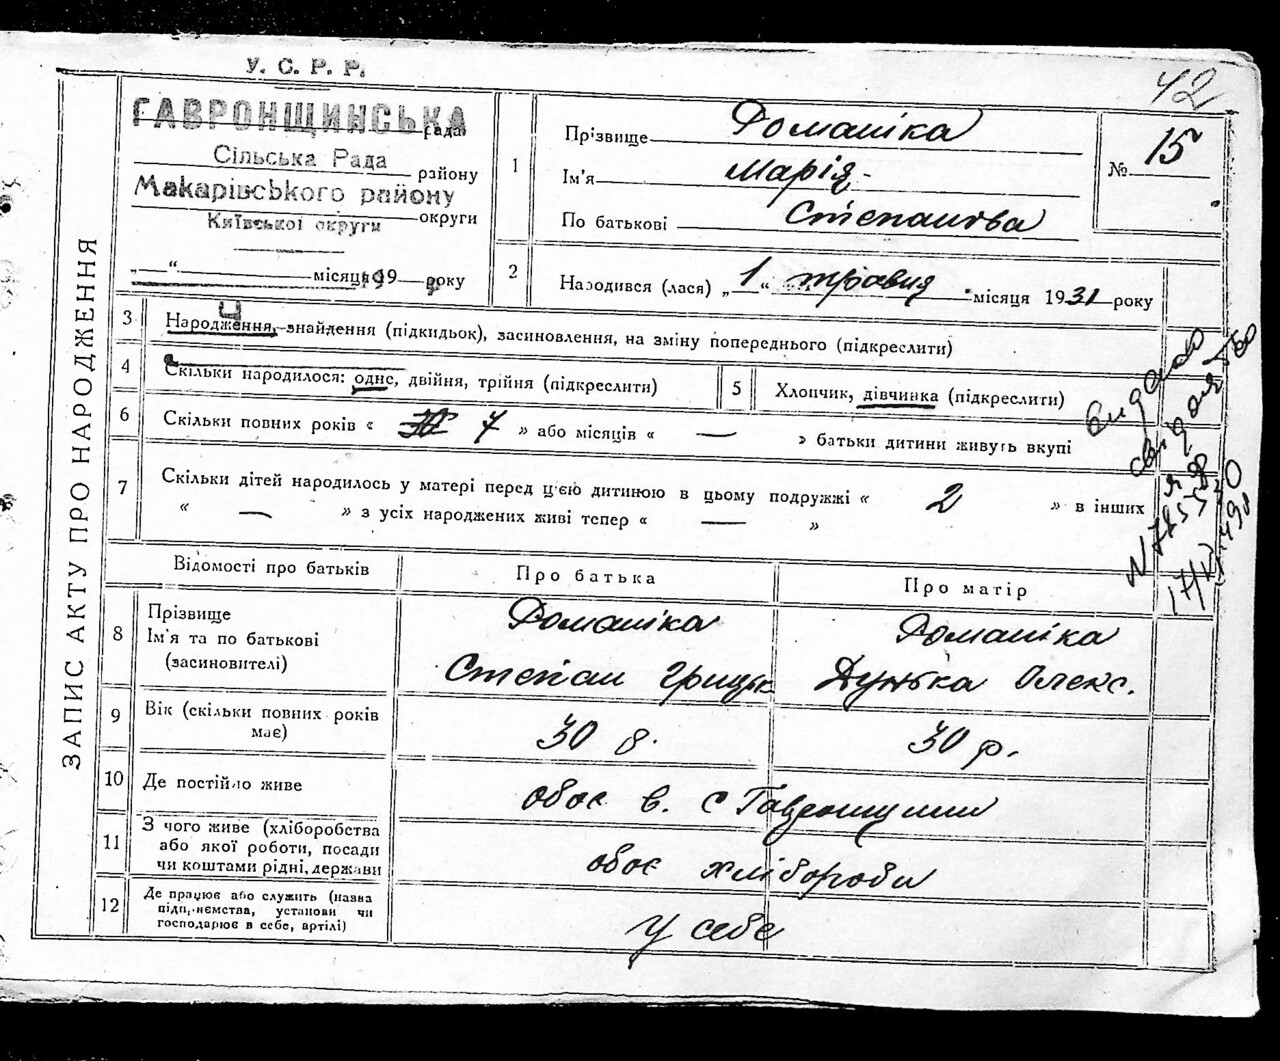 У. С. Р. Р.
42
ЗАПИС АКТУ ПРО НАРОДЖЕННЯ
ГАВРОНЩИНСЬКА рада
Сільська Рада району
Макарівського району
Київської округи округи
„ — “ місяця 19 — року
1 Прізвище Романіка
Ім'я Марія
По батькові Степанова
№ 15
2 Народився (лася) „ 1 “ травня місяця 1931 року
3 Народження, знайдення (підкидьок), засиновлення, на зміну попереднього (підкреслити)
4 Скільки народилося: одне, двійня, трійня (підкреслити)
5 Хлопчик, дівчинка (підкреслити)
6 Скільки повних років « 7 » або місяців « — » батьки дитини живуть вкупі
7 Скільки дітей народилось у матері перед ц'єю дитиною в цьому подружжі « 2 » в інших
« — » з усіх народжених живі тепер « — »
Відомості про батьків Про батька Про матір
8 Прізвище
Ім'я та по батькові
(засиновителі)
Романіка
Степан Грицьк
Романіка
Дунька Олекс.
9 Вік (скільки повних років
має)
30 р. 30 р.
10 Де постійно живе обоє в. с Гавронщини
11 З чого живе (хліборобства
або якої роботи, посади
чи коштами рідні, держави
обоє хлібороби
12 Де працює або служить (назва
підприємства, установи чи
господарює в себе, артілі)
у себе
видано